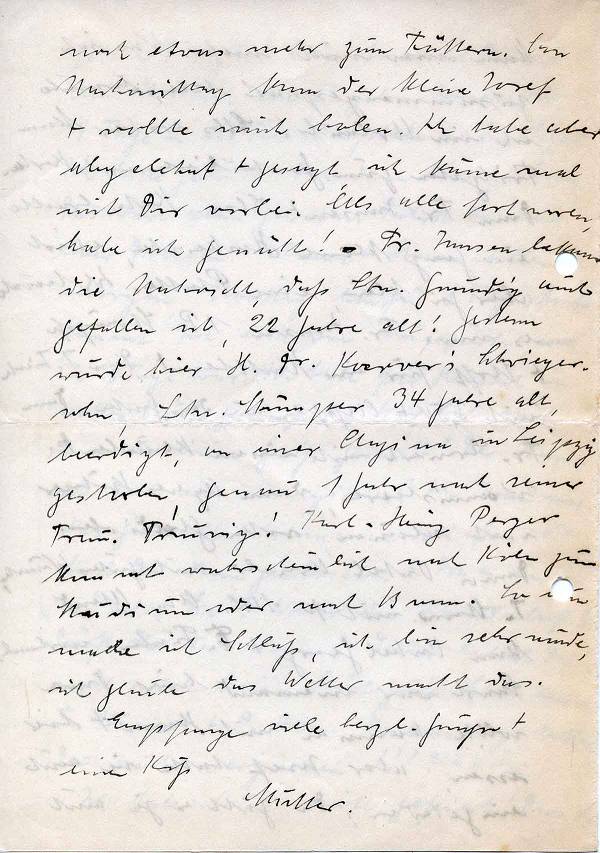 noch etwas mehr zum Füttern. Am
Nachmittag kam der kleine Josef
+ wollte mich holen. Ich habe aber
abgelehnt + gesagt ich käme mal
mit Dir vorbei. Als alle fort waren,
habe ich genäht! - Fr. Jansen bekam
die Nachricht, daß Ltn. Grundig auch
gefallen ist, 22 Jahre alt! Gestern
wurde hier H. Dr. Schwieger-
sohn, Ltn. 34 Jahre alt,
beerdigt, an einer Angina in Leipzig
gestorben, genau 1 Jahr nach seiner
Frau. Traurig! Karl-Heinz Perger
kommt wahrscheinlich nach Köln zum
Studium oder nach Bonn. So nun
mache ich Schluß, ich bin sehr müde,
ich glaube das Wetter macht das.
Empfange viele herzl. Grüße +
einen Kuß
Mutter.